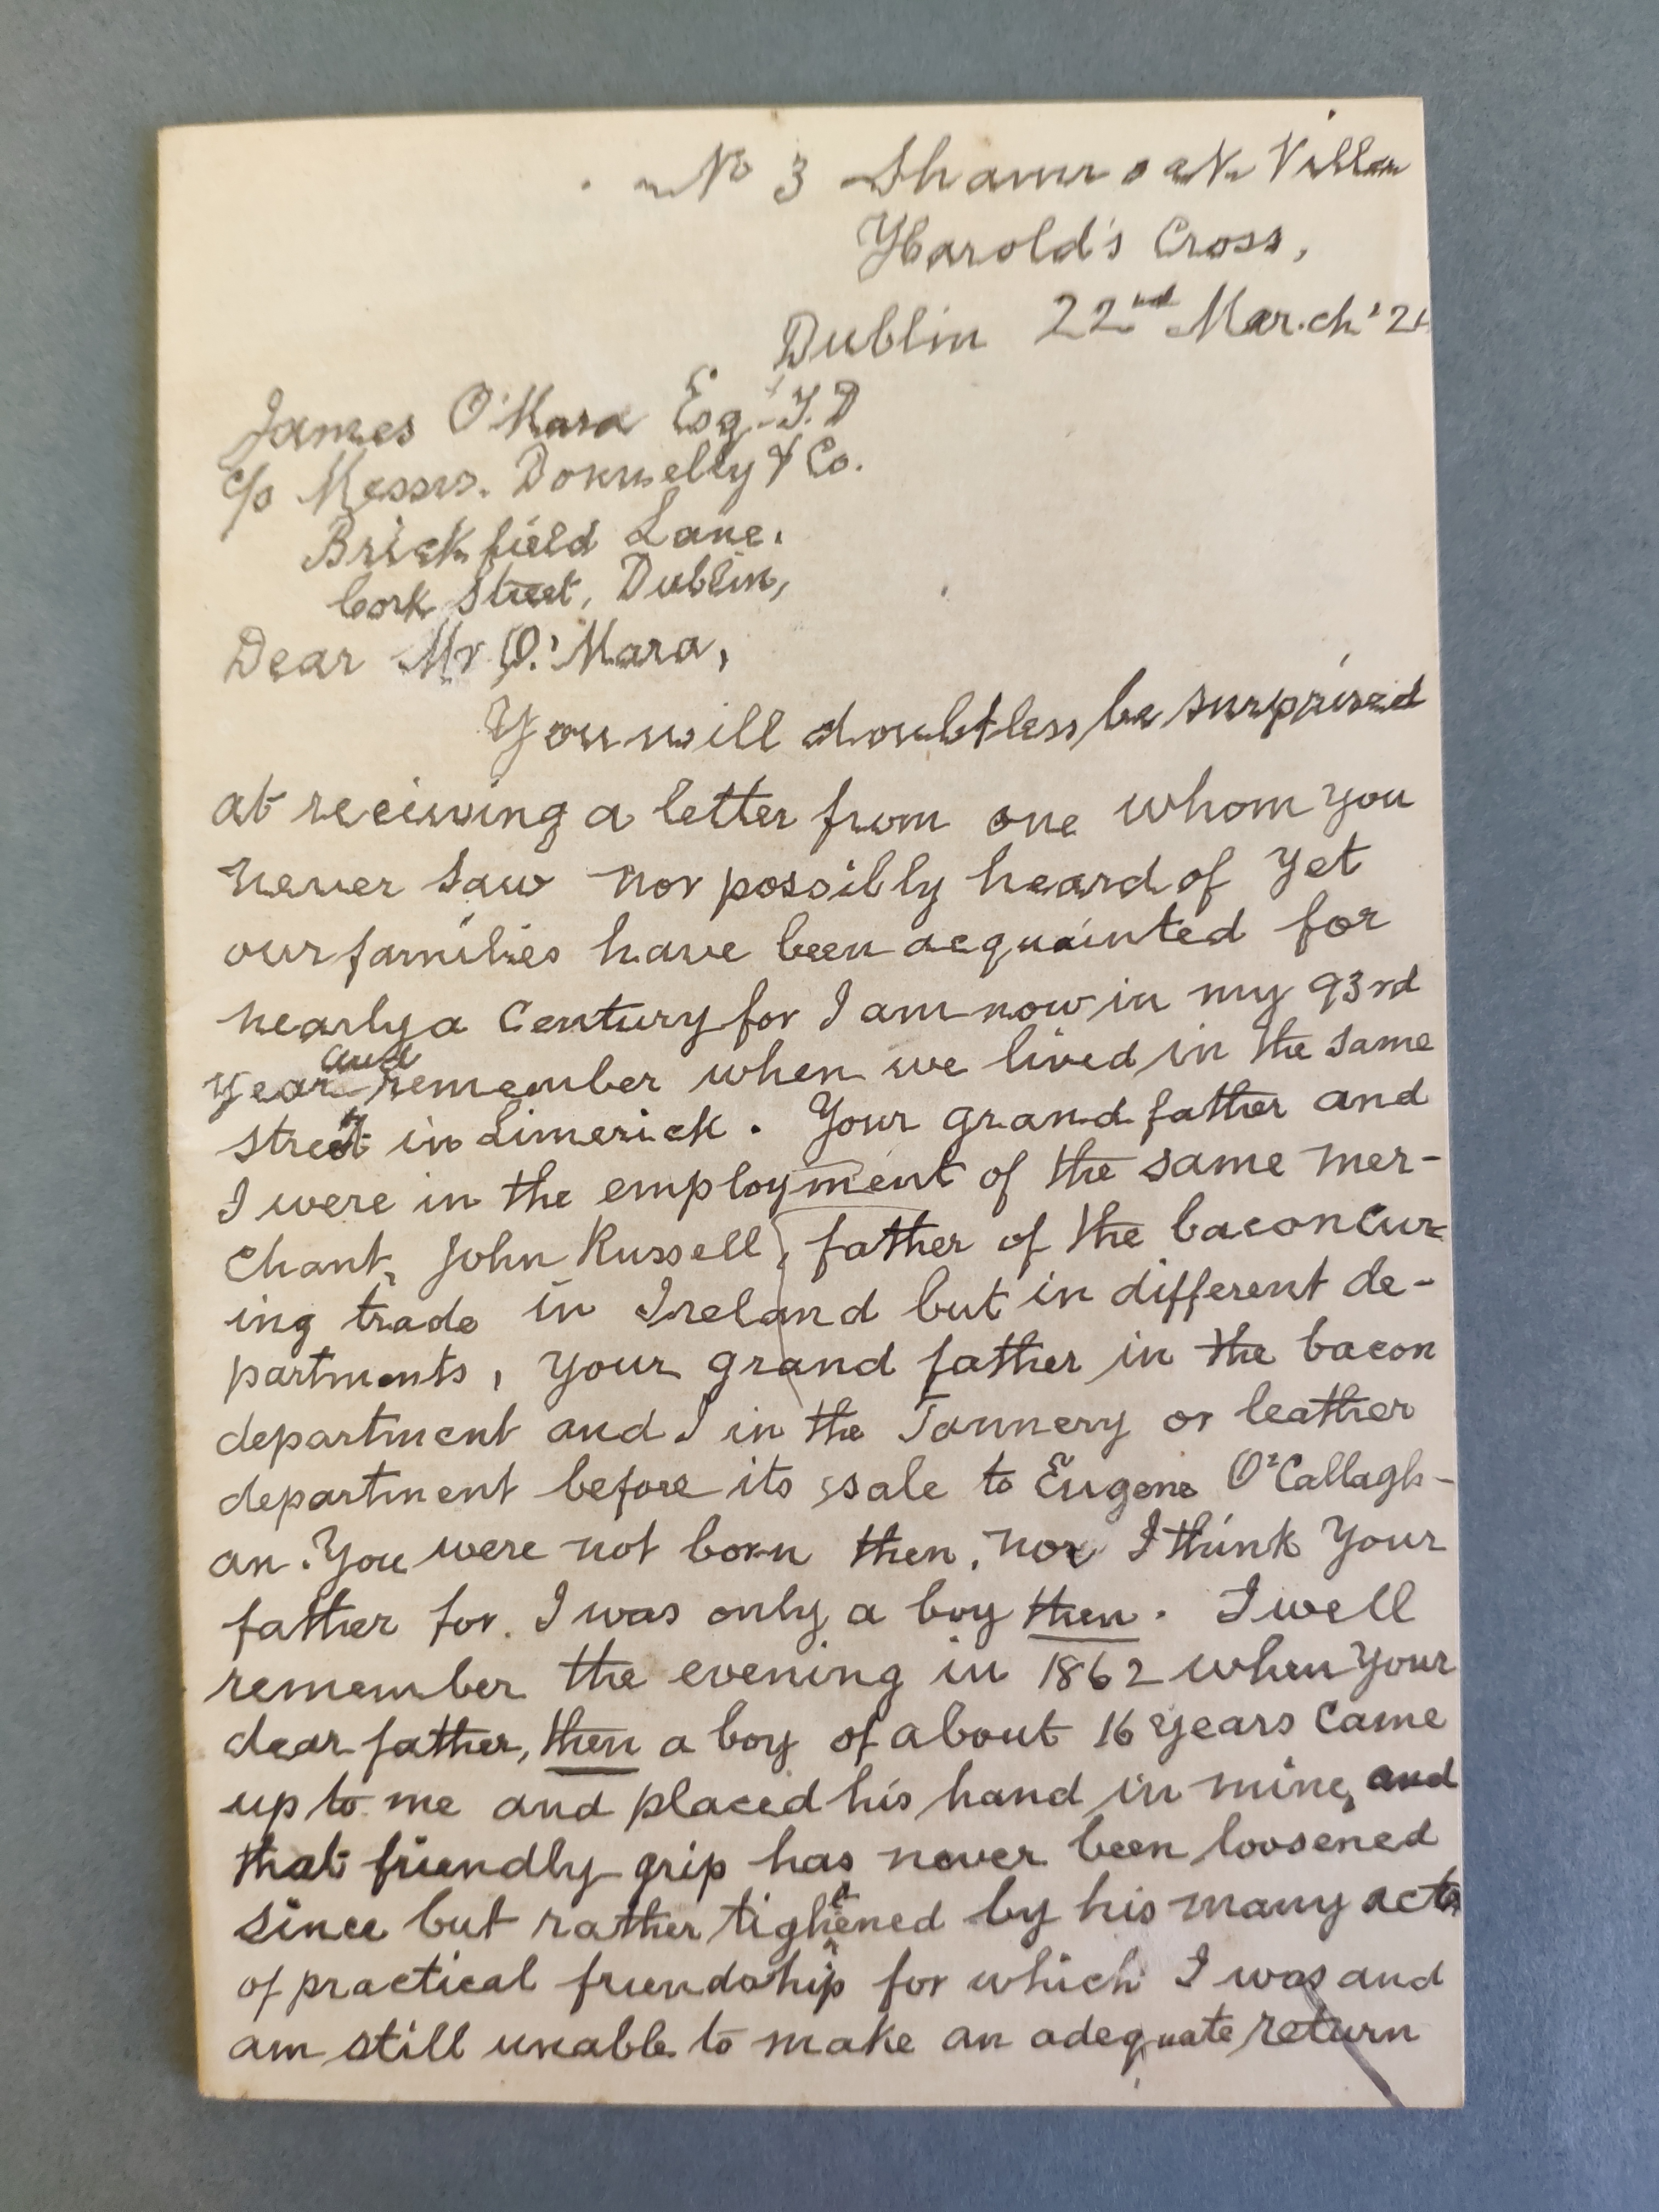 No 3 Shamrock Villas
Harold's Cross,
Dublin 22nd March '2
James O'Mara Esq. T.D
c/o Messrs. Donnelly & Co.
Brickfield Lane.
Cork Street, Dublin,
Dear Mr O'Mara,
You will doubtless be surprised
at receiving a letter from one whom you
never saw nor possibly heard of yet
our families have been acquainted for
nearly a Century for I am now in my 93rd
year and remember when we lived in the same
street in Limerick. Your grandfather and
I were in the employment of the same mer-
chant, John Russell, father of the baconcur-
ing trade in Ireland but in different de-
partments, your grand father in the bacon
department and I in the Tannery or leather
department before its sale to Eugene O'Callagh-
an. You were not born then, nor I think Your
father for I was only a boy then. I well
remember the evening in 1862 when your
dear father, then a boy of about 16 years came
up to me and placed his hand in mine, and
that friendly grip has never been loosened
since but rather tightened by his many acts
of practical friendship for which I was and
am still unable to make an adequate return